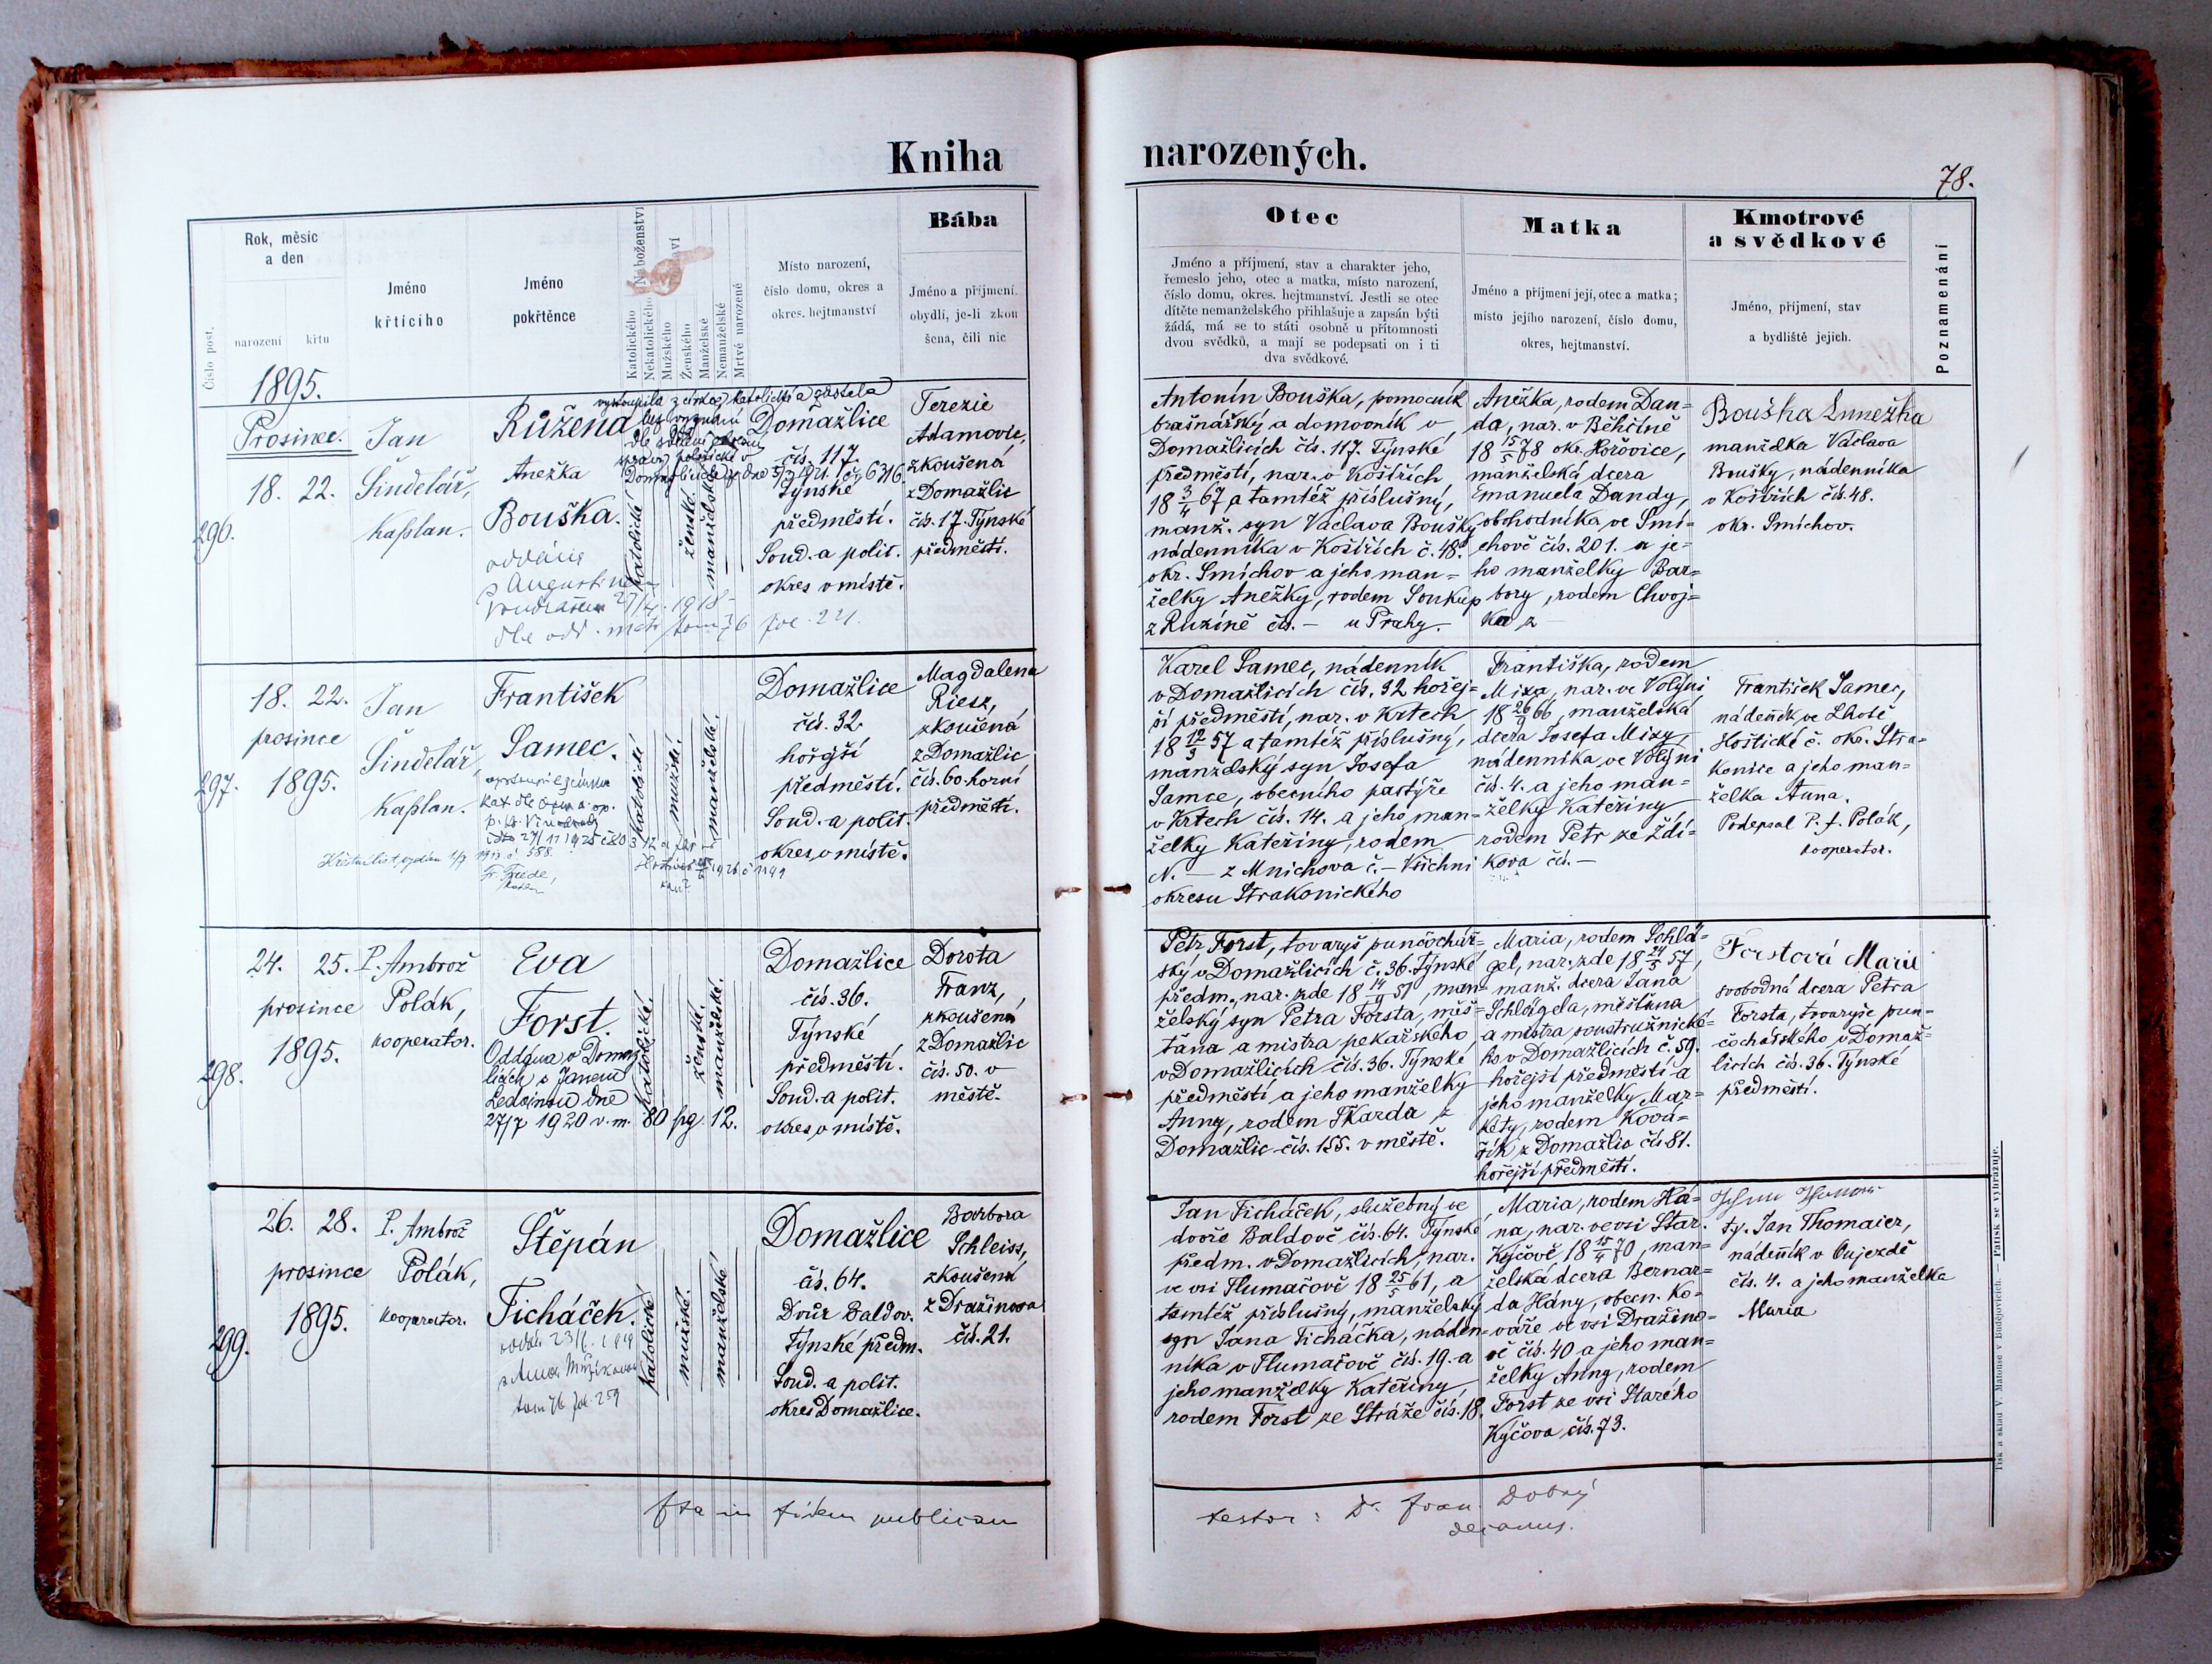 Kniha
narozených.
78.
Číslo post.
Rok, měsíc
a den
narození
křtu
1895.
Jméno
křtícího
Jméno
pokřtěnce
Náboženství
Katolického
Nekatolického
Mužského
Ženského
Manželské
Nemanželské
Mrtvé narozené
Místo narození,
číslo domu, okres a
okres. hejtmanství
Bába
Jméno a příjmení.
obydlí, je-li zkou
šena, čili nic
Otec
Jméno a příjmení, stav a charakter jeho,
řemeslo jeho, otec a matka, místo narození,
číslo domu, okres. hejtmanství. Jestli se otec
dítěte nemanželského přihlašuje a zapsán býti
žádá, má se to státi osobně u přítomnosti
dvou svědků, a mají se podepsati on i ti
dva svědkové.
Matka
Jméno a příjmení její, otec a matka;
místo jejího narození, číslo domu,
okres, hejtmanství.
Kmotrové
a svědkové
Jméno, příjmení, stav
a bydliště jejich.
Poznamenání
296.
Prosinec.
18. 22.
Jan
Šindelář,
kaplan.
Růžena
Anežka
Bouška.
oddána
s Augustinem
27/4. 1918
dle odd. matr tom 76 fol. 221.
vystoupila z církve katolické a zůstala
bez vyznání
dle sdělení okresní
správy politické v
Domažlicích ze dne 5/3 1921. čj 6316.
katolické
ženské.
manželské
Domažlice
čís. 117.
Týnské
předměstí.
Soud. a polit.
okres v místě.
Terezie
Adamovic,
zkoušená
z Domažlic
čís. 17. Týnské
předměstí.
Antonín Bouška, pomocník
brašnářský a domovník v
Domažlicích čís. 117. Týnské
předměstí, nar. v Košířích,
18 3/4 67 a tamtéž příslušný,
manž. syn Václava Boušky
nádenníka v Košířích č. 48.
okr. Smíchov a jeho man=
želky Anežky, rodem Soukup
z Ruzíně čís. — u Prahy.
Anežka, rodem Dan=
da, nar. v Běhčíně
18 15/5 78 okr. Hořovice,
manželská dcera
Emanuela Dandy,
obchodníka ve Smí=
chově čís. 201. a je=
ho manželky Bar=
bory, rodem Chvoj=
ka z —
Bouška Annežka
manželka Václava
Boušky, nádenníka
v Košířích čís. 48.
okr. Smíchov.
297.
18. 22.
prosince
1895.
Jan
Šindelář,
kaplan.
František
Samec.
vystoupil z církve
kat dle
Křestní list vydán
katolické
mužské.
manželské.
Domažlice
čís. 32.
hořejší
předměstí.
Soud. a polit.
okres v místě.
Magdalena
Riesz,
zkoušená
z Domažlic
čís. 60. horní
předměstí.
Karel Samec, nádenník
v Domažlicích čís. 32 hořej=
ší předměstí, nar. v Krtech
18 12/3 57 a tamtéž příslušný,
manželský syn Josefa
Samce, obecního pastýře
v Krtech čís. 14. a jeho man=
želky Kateřiny, rodem
N. — z Mnichova č. — Všichni
okresu Strakonického
Františka, rodem
Mixa, nar. ve Volyni
18 26/9 66, manželská
dcera Josefa Mixy,
nádenníka ve Volyni
čís. 4. a jeho man=
želky Kateřiny
rodem Petr ze Ždí=
kova čís. —
František Samec,
nádeňík ve Lhotě
Hoštické č. okr. Stra=
konice a jeho man=
želka Anna.
Podepsal P. f. Polák,
kooperator.
298.
24. 25.
prosince
1895.
P. Ambrož
Polák,
kooperator.
Eva
Forst.
Oddána v Domaž
licích s Janem
Ledvinou dne
27/7 1920 v. m. 80 pg. 12.
katolické.
ženské.
manželské.
Domažlice
čís. 36.
Týnské
předměstí.
Soud. a polit.
okres v místě.
Dorota
Franz,
zkoušená
z Domažlic
čís. 50. v
městě.
Petr Forst, tovaryš punčochář=
ský v Domažlicích č. 36. Týnské
předm., nar. zde 18 14/9 51, man=
želský syn Petra Forsta, měš=
ťana a mistra pekařského
v Domažlicích čís. 36. Týnské
předměstí a jeho manželky
Anny, rodem Skarda z
Domažlic čís. 155. v městě.
Maria, rodem Schlä=
gel, nar. zde 18 24/5 57,
manž. dcera Jana
Schlägela, měšťana
a mistra soustružnické=
ho v Domažlicích č. 59.
hořejší předměstí a
jeho manželky Mar=
kéty, rodem Kova=
řík z Domažlic čís 81.
hořejší předměstí.
Forstová Marie
svobodná dcera Petra
Forsta, tovaryše pun=
čochářského v Domaž=
licích čís. 36. Týnské
předměstí.
299.
26. 28.
prosince
1895.
P. Ambrož
Polák,
kooperator.
Štěpán
Ticháček.
oddán 23/6. 1919
s Annou
tom 76 fol. 259
katolické
mužské.
manželské
Domažlice
čís. 64.
Dvůr Baldov.
Týnské předm.
Soud. a polit.
okres Domažlice.
Barbora
Schleiss,
zkoušená
z Dražinova
čís. 21.
Jan Ticháček, služebný ve
dvoře Baldově čís. 64. Týnské
předm. v Domažlicích, nar.
ve vsi Tlumačově 18 25/5 61, a
tamtéž příslušný, manželský
syn Jana Ticháčka, náden=
níka v Tlumačově čís. 19. a
jeho manželky Kateřiny
rodem Forst ze Stráže čís. 18.
Maria, rodem Há=
na, nar. ve vsi Star.
Kyčově 18 15/4 70, man=
želská dcera Bernar=
da Hány, obecn. ko=
váře ve vsi Dražino=
vě čís. 40 a jeho man=
želky Anny, rodem
Forst ze vsi Starého
Kyčova čís. 73.
tj. Jan Thomaier,
nádeňík v Oujezdě
čís. 4. a jeho manželka
Maria
Ita in fidem publicam
testor: Dr. Fran. Dobrý
decanus.
Tisk a sklad V. Matouše v Budějovicích. — Patisk se vyhražuje.